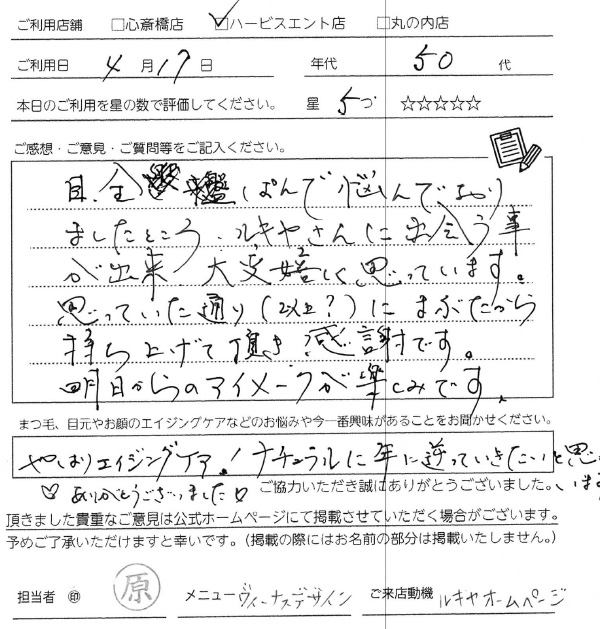 ご利用店舗 □心斎橋店 ☑ハービスエント店 □丸の内店
ご利用日 4月17日 年代 50代
本日のご利用を星の数で評価してください。 星 5つ ☆☆☆☆☆
ご感想・ご意見・ご質問等をご記入ください。
目、全 しぼんで悩んでおり
ましたところ、ルキヤさんに出会う事
が出来 大変嬉しく思っています。
思っていた通り(以上?)にまぶたから
持ち上げて頂き感謝です。
明日からのアイメークが楽しみです。
まつ毛、目元やお顔のエイジングケアなどのお悩みや今一番興味があることをお聞かせください。
やはりエイジングケア!ナチュラルに年に逆っていきたいと思
います
♡ありがとうございました♡ ご協力いただき誠にありがとうございました。
頂きました貴重なご意見は公式ホームページにて掲載させていただく場合がございます。
予めご了承いただけますと幸いです。(掲載の際にはお名前の部分は掲載いたしません。)
担当者 ㊞ 原 メニュー ヴィーナスデザイン ご来店動機 ルキヤホームページ